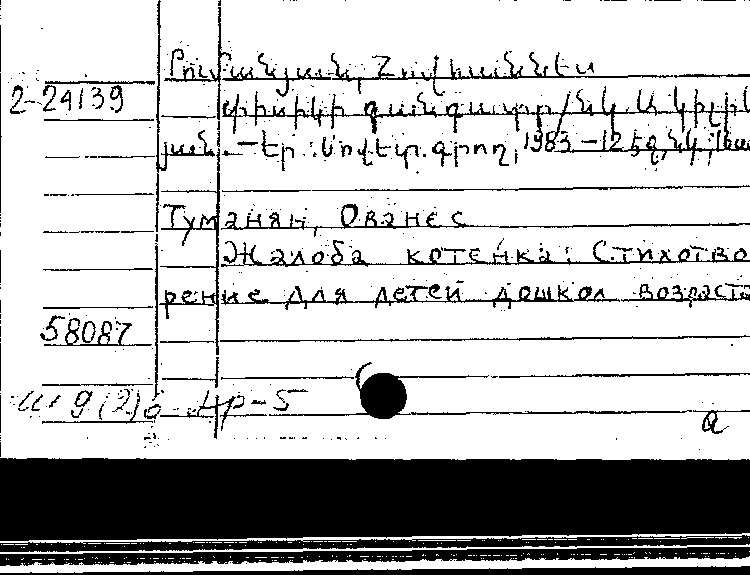 Թումանյան, Հովհաննես
2-24139
Փիսիկի գանգատը/Նկ. Ա. Կիլիկ
յան. – Եր.: Սովետ. գրող, 1983. – 12 էջ, նկ.;
Туманян, Ованес
Жалоба котенка: Стихотво
рение для детей дошкол возраста
58087
9(2)6 Ар-5
a